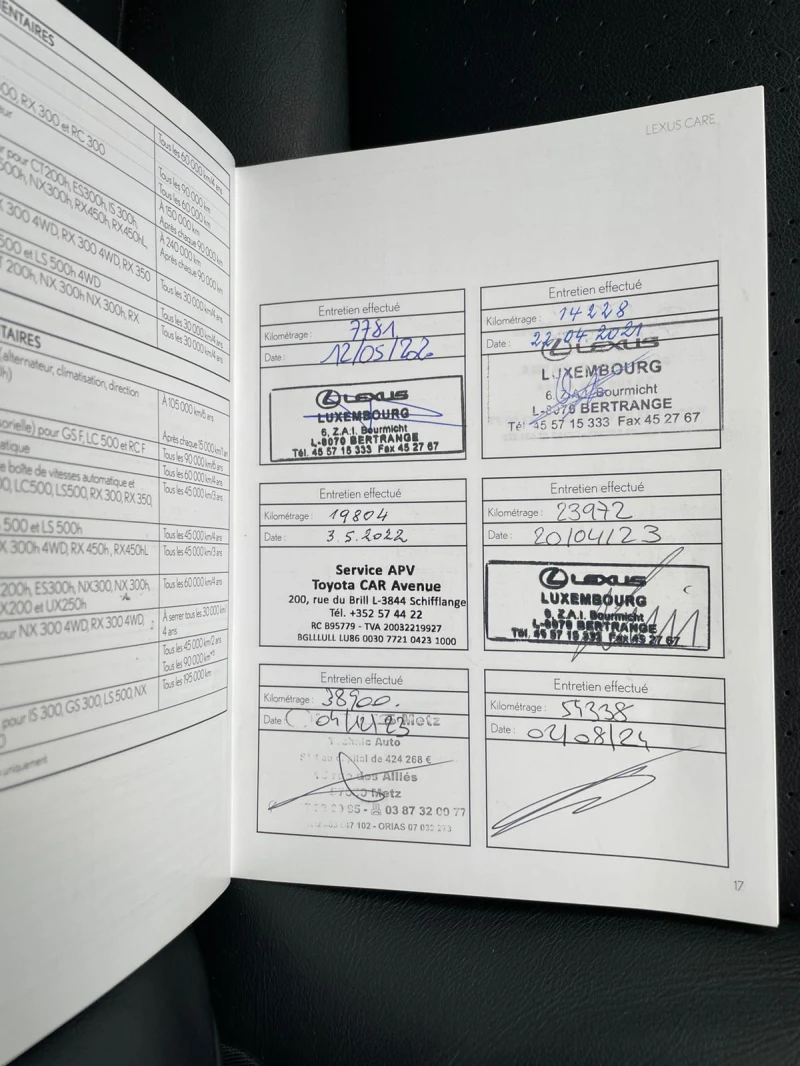 ENTAIRES
00, RX 300 et RC 300
eur
Tous les 60 000 km/4 ans
Tous les 90 000 km
Tous les 60 000 km
À 150 000 km
Après chaque 90 000 km
À 240 000 km
Après chaque 90 000 km
pour CT200h, ES300h, IS 300h,
500h, NX300h, RX450h, RX450hL
X 300 4WD, RX 300 4WD, RX 350
Tous les 30 000 km/4 ans
500 et LS 500h 4WD
T 200h, NX 300h NX 300h, RX
Tous les 30 000 km/4 ans
Tous les 30 000 km/4 ans
TAIRES
(alternateur, climatisation, direction
0h)
À 105 000 km/6 ans
sorielle) pour GS F, LC 500 et RC F
atique
Après chaque 15 000 km/1 an
Tous les 90 000 km/6 ans
e boîte de vitesses automatique et
00, LC500, LS500, RX 300, RX 350,
Tous les 60 000 km/4 ans
Tous les 45 000 km/3 ans
500 et LS 500h
Tous les 45 000 km/4 ans
X 300h 4WD, RX 450h, RX450hL
Tous les 45 000 km/4 ans
200h, ES300h, NX300, NX 300h,
X200 et UX250h
Tous les 60 000 km/4 ans
our NX 300 4WD, RX 300 4WD,
À serrer tous les 30 000 km/
4 ans
Tous les 45 000 km/2 ans
Tous les 90 000 km
Tous les 195 000 km
pour IS 300, GS 300, LS 500, NX
0
uniquement
LEXUS CARE
Entretien effectué
Kilométrage : 7781
Date : 12/05/202
LEXUS
LUXEMBOURG
6, Z.A.I. Bourmicht
L-8070 BERTRANGE
Tél. 45 57 15 333 Fax 45 27 67
Entretien effectué
Kilométrage : 14228
Date : 22.04.2021
LEXUS
LUXEMBOURG
6, Z.A.I. Bourmicht
L-8070 BERTRANGE
Tél. 45 57 15 333 Fax 45 27 67
Entretien effectué
Kilométrage : 19804
Date : 3.5.2022
Service APV
Toyota CAR Avenue
200, rue du Brill L-3844 Schifflange
Tél. +352 57 44 22
RC B95779 - TVA 20032219927
BGLLLULL LU86 0030 7721 0423 1000
Entretien effectué
Kilométrage : 23972
Date : 20/04/23
LEXUS
LUXEMBOURG
6, Z.A.I. Bourmicht
L-8070 BERTRANGE
Tél. 45 57 15 333 Fax 45 27 67
Entretien effectué
Kilométrage : 38900.
Date : 04/12/23
Metz
Technic Auto
capital de 424 268 €
rue des Alliés
Metz
03 87 32 00 77
102 - ORIAS 07 032 273
Entretien effectué
Kilométrage : 54338
Date : 02/08/24
17